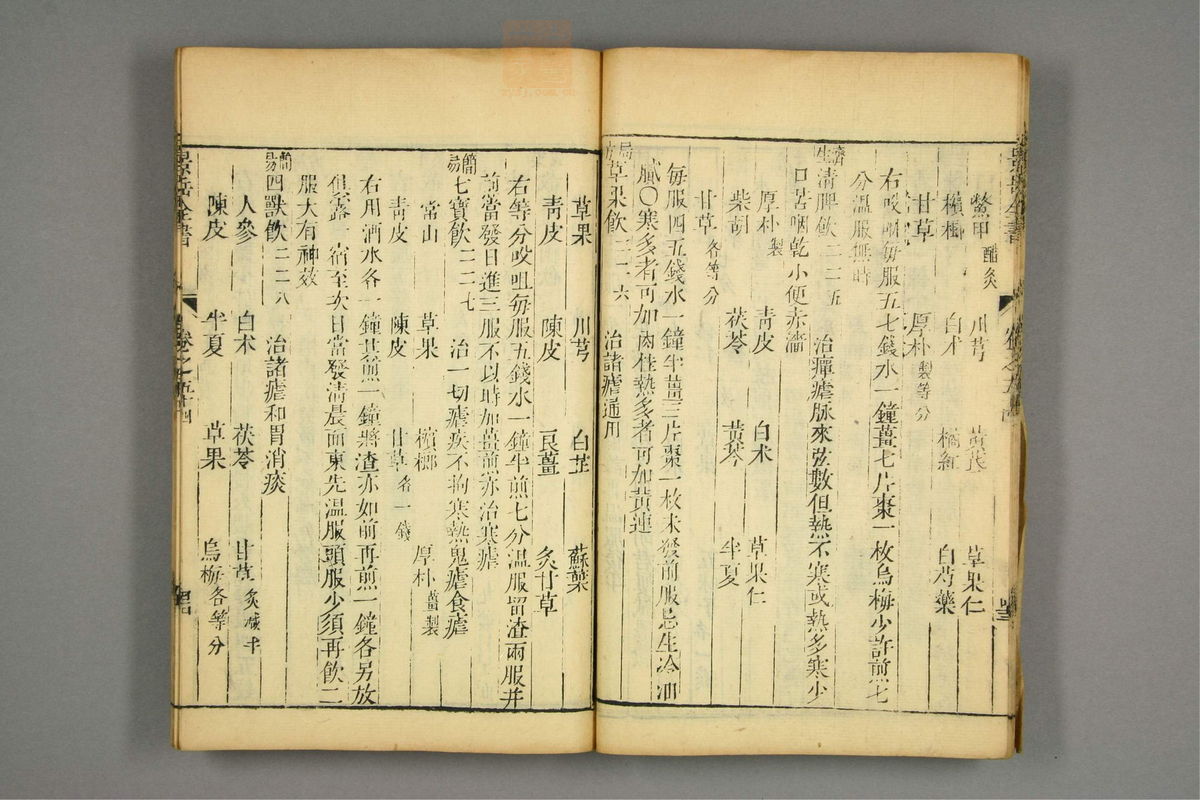 鱉甲醋炙 川芎 黃芪 草果仁
檳榔 白朮 橘紅 白芍藥
甘草 厚朴製等分
右㕮咀每服五七錢水一鐘薑七片棗一枚烏梅少許煎七
分溫服無時
濟生清脾飲二二五 治癉瘧脉來弦數但熱不寒或熱多寒少
口苦咽乾小便赤濇
厚朴製 青皮 白朮 草果仁
柴胡 茯苓 黃芩 半夏
甘草各等分
每服四五錢水一鐘半薑三片棗一枚未發前服忌生冷油
膩〇寒多者可加肉桂熱多者可加黃連
局方草果飲二二六 治諸瘧通用
草果 川芎 白芷 蘇葉
青皮 陳皮 良薑 炙甘草
右等分㕮咀每服五錢水一鐘半煎七分溫服留渣兩服并
煎當發日進三服不以時加薑煎亦治寒瘧
簡易七寶飲二二七 治一切瘧疾不拘寒熱鬼瘧食瘧
常山 草果 檳榔 厚朴薑製
青皮 陳皮 甘草各一錢
右用酒水各一鐘煎一鐘將渣亦如前再煎一鐘各另放
俱露一宿至次日當發清晨面東先溫服頭服少須再飲二
服大有神效
簡易四獸飲二二八 治諸瘧和胃消痰
人參 白朮 茯苓 甘草炙減半
陳皮 半夏 草果 烏梅各等分
景岳全書 卷之五十四